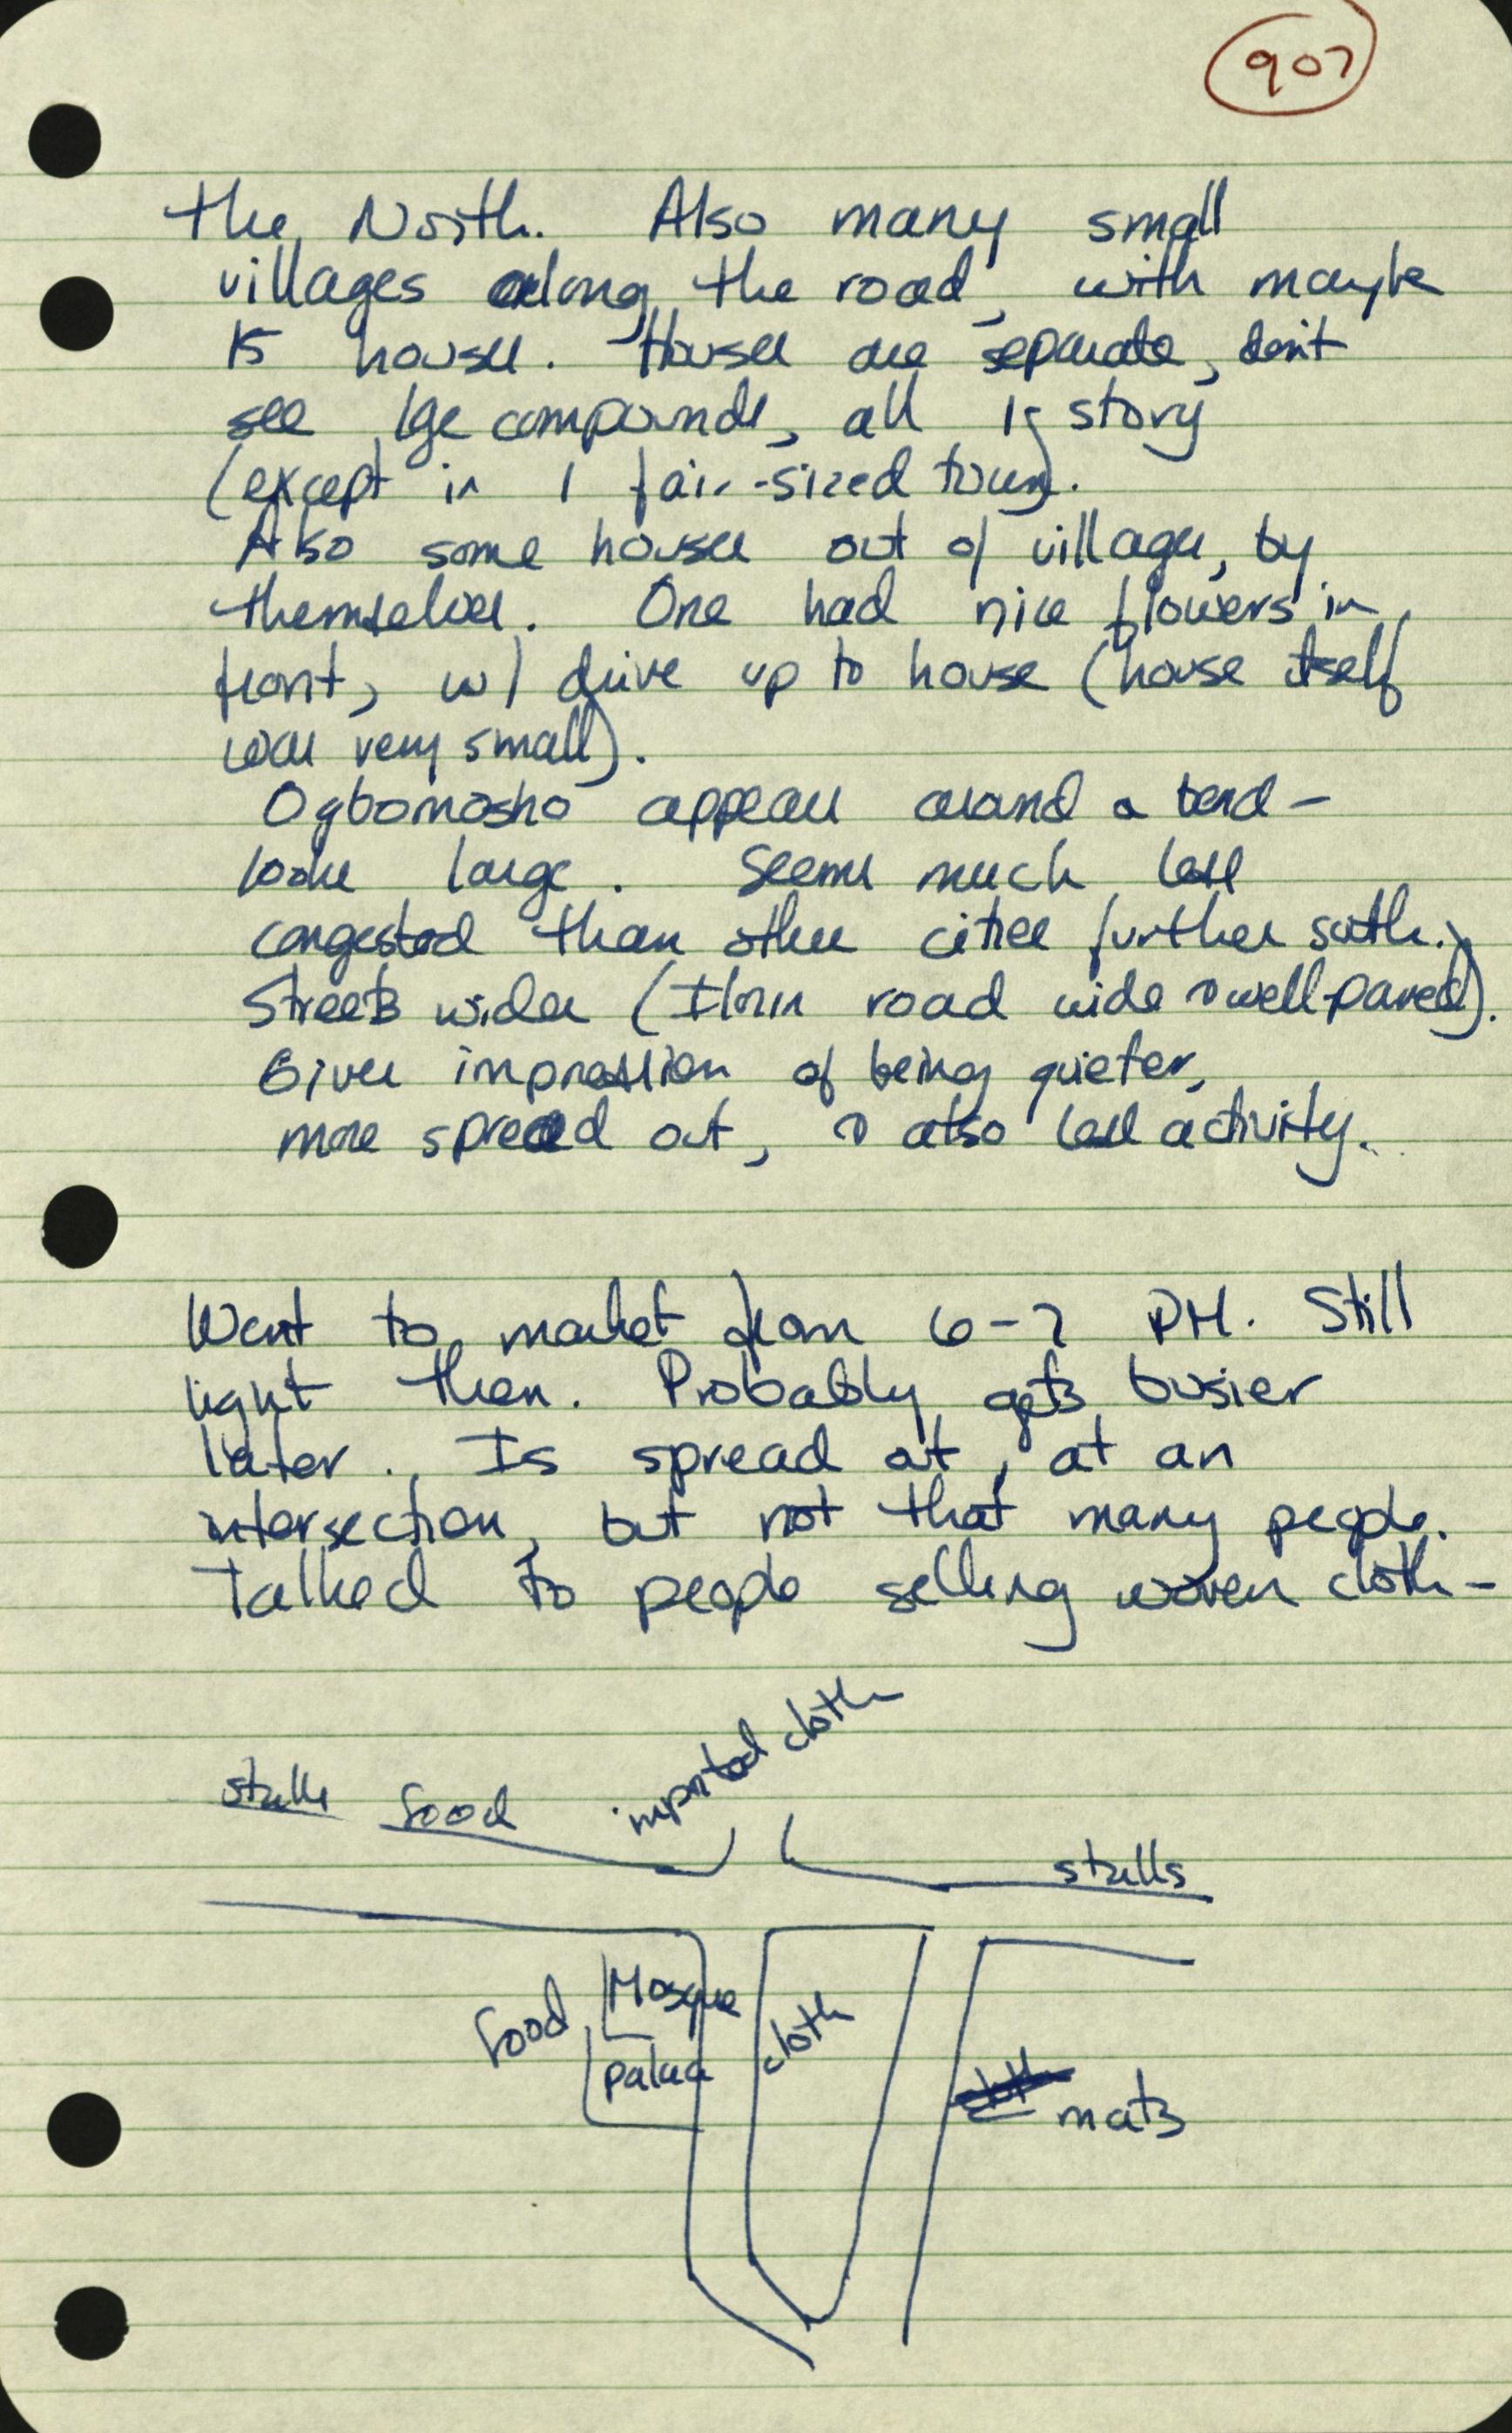 907
the North. Also many small
villages along the road, with maybe
15 houses. Houses are separate, don't
see lge compounds, all 1 story
(except in 1 fair-sized town).
Also some houses out of villages, by
themselves. One had nice flowers in
front, w/ drive up to house (house itself
was very small).
Ogbomosho appears around a bend -
looks large. Seems much less
congested than other cities further south.
Streets wider (Ilorin road wide & well-paved).
Gives impression of being quieter,
more spread out, & also less activity.
Went to market from 6-7 PM. Still
light then. Probably gets busier
later. Is spread out, at an
intersection, but not that many people.
Talked to people selling woven cloth -
imported cloth
stalls food
stalls
food Mosque cloth
palace
mats